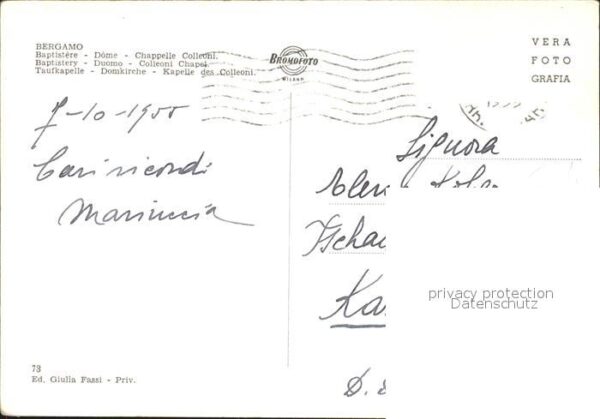 BERGAMO
Baptistère - Dôme - Chappelle Colleoni.
Baptistery - Duomo - Colleoni Chapel.
Taufkapelle - Domkirche - Kapelle des Colleoni.
BROMOFOTO
MILANO
VERA
FOTO
GRAFIA
7-10-1955
Cari ricordi
Mariuccia
Signora
Ka
privacy protection
Datenschutz
73
Ed. Giulia Fassi - Priv.